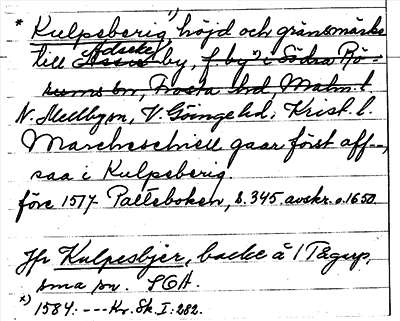 * Kulpsberig,¹⁾ höjd och gränsmärke
till Adseke by, f. by ˣ⁾ i Södra Rö-
rums sn, Frosta hd, Malm. l.
N. Mellby sn, V. Göinge hd, Krist. l.
Marcheschiell gaar först aff --,
saa i Kulpsberig.
före 1517 Palteboken, s. 345. avskr. o. 1650.
Jfr Kulpesbjer, backe å 1 Tågarp,
sma sn. SOA.
ˣ⁾ 1584: --- Kr. Sk. I: 282.